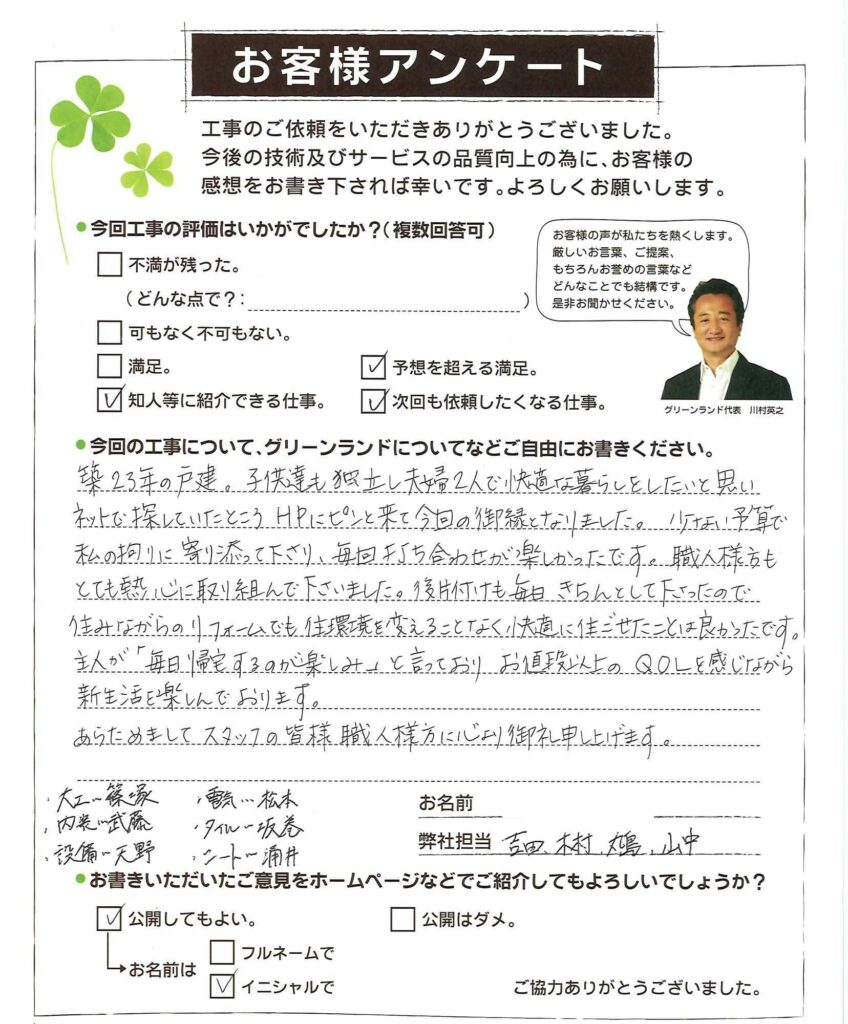 お客様アンケート
工事のご依頼をいただきありがとうございました。
今後の技術及びサービスの品質向上の為に、お客様の
感想をお書き下されば幸いです。よろしくお願いします。
●今回工事の評価はいかがでしたか？（複数回答可）
お客様の声が私たちを熱くします。
厳しいお言葉、ご提案、
もちろんお誉めの言葉など
どんなことでも結構です。
是非お聞かせください。
グリーンランド代表 川村英之
□ 不満が残った。
（どんな点で？： ）
□ 可もなく不可もない。
□ 満足。 ☑ 予想を超える満足。
☑ 知人等に紹介できる仕事。 ☑ 次回も依頼したくなる仕事。
●今回の工事について、グリーンランドについてなどご自由にお書きください。
築23年の戸建。子供達も独立し夫婦2人で快適な暮らしをしたいと思い
ネットで探していたところHPにピンと来て今回の御縁となりました。少ない予算で
私の拘りに寄り添って下さり、毎回打ち合わせが楽しかったです。職人様方も
とても熱心に取り組んで下さいました。後片付けも毎日きちんとして下さったので
住みながらのリフォームでも住環境を変えることなく快適に住ごせたことは良かったです。
主人が「毎日帰宅するのが楽しみ」と言っており お値段以上のQOLを感じながら
新生活を楽しんでおります。
あらためましてスタッフの皆様 職人様方に心より御礼申し上げます。
・大工…篠塚 ・電気…松本
・内装…武藤 ・タイル…坂巻
・設備…天野 ・シート…涌井
お名前
弊社担当 吉田、木村、嶋、山中
●お書きいただいたご意見をホームページなどでご紹介してもよろしいでしょうか？
☑ 公開してもよい。 □ 公開はダメ。
お名前は □ フルネームで
☑ イニシャルで
ご協力ありがとうございました。